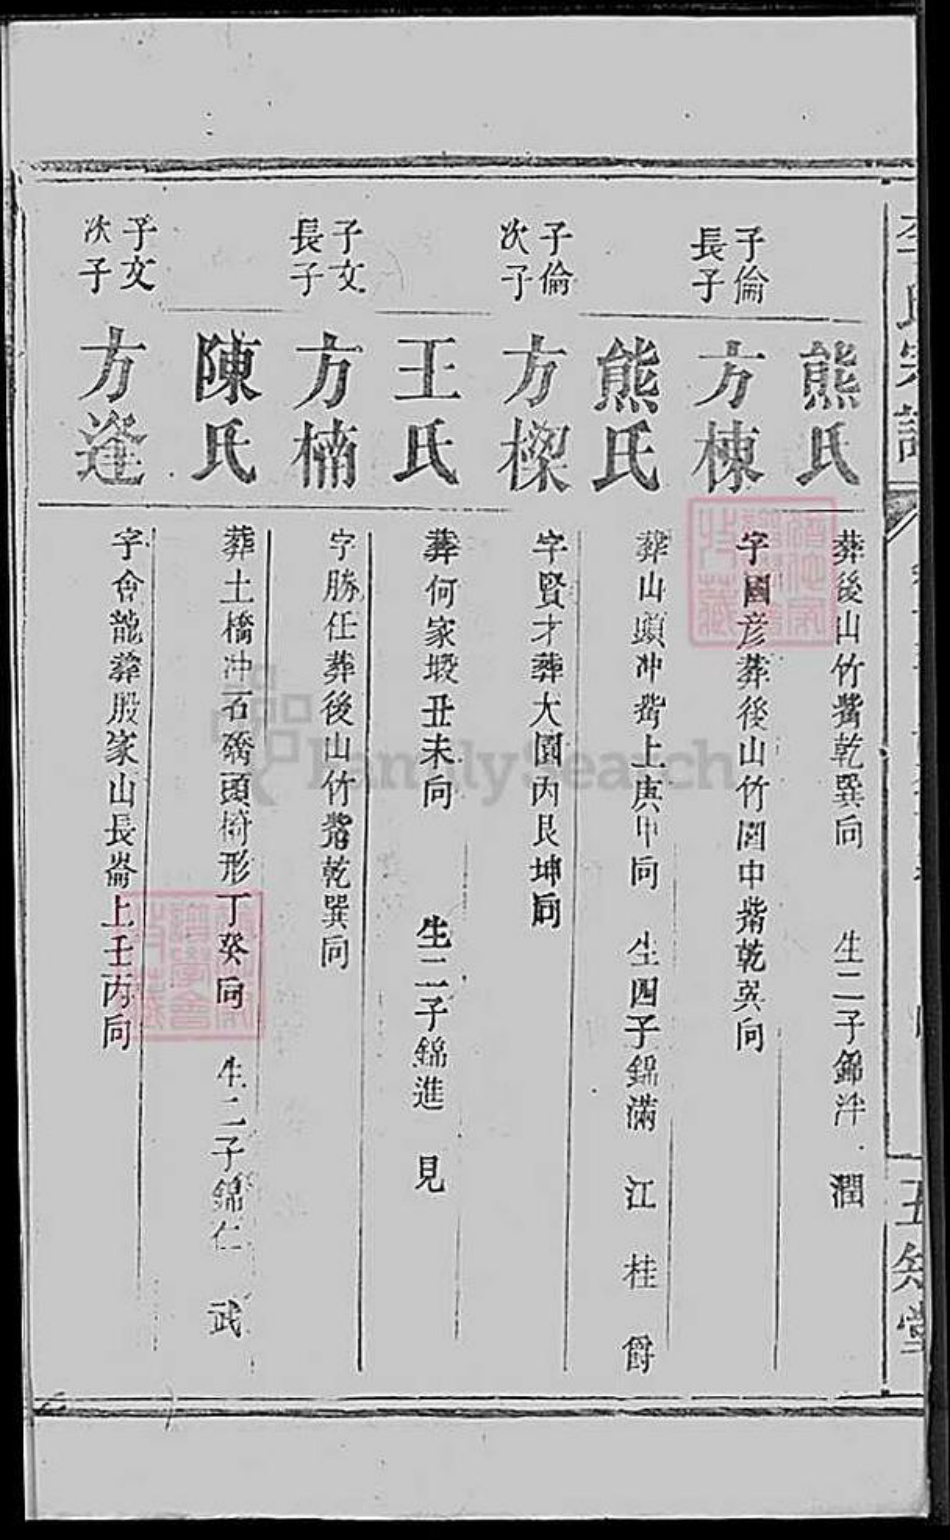 李氏宗譜
五知堂
熊氏
葬後山竹觜乾巽向 生二子錦泮 潤
子倫長子
方棟
字國彥葬後山竹園中觜乾巽向
熊氏
葬山頭冲觜上庚甲向 生四子錦滿 江 桂 爵
子倫次子
方樑
字賢才葬大園內艮坤向
王氏
葬何家塅丑未向 生二子錦進 見
子文長子
方楠
字勝任葬後山竹觜乾巽向
陳氏
葬土橋冲石磅頭椅形丁癸向 生二子錦仁 武
子文次子
方逢
字會龍葬殷家山長崙上壬丙向
FamilySearch